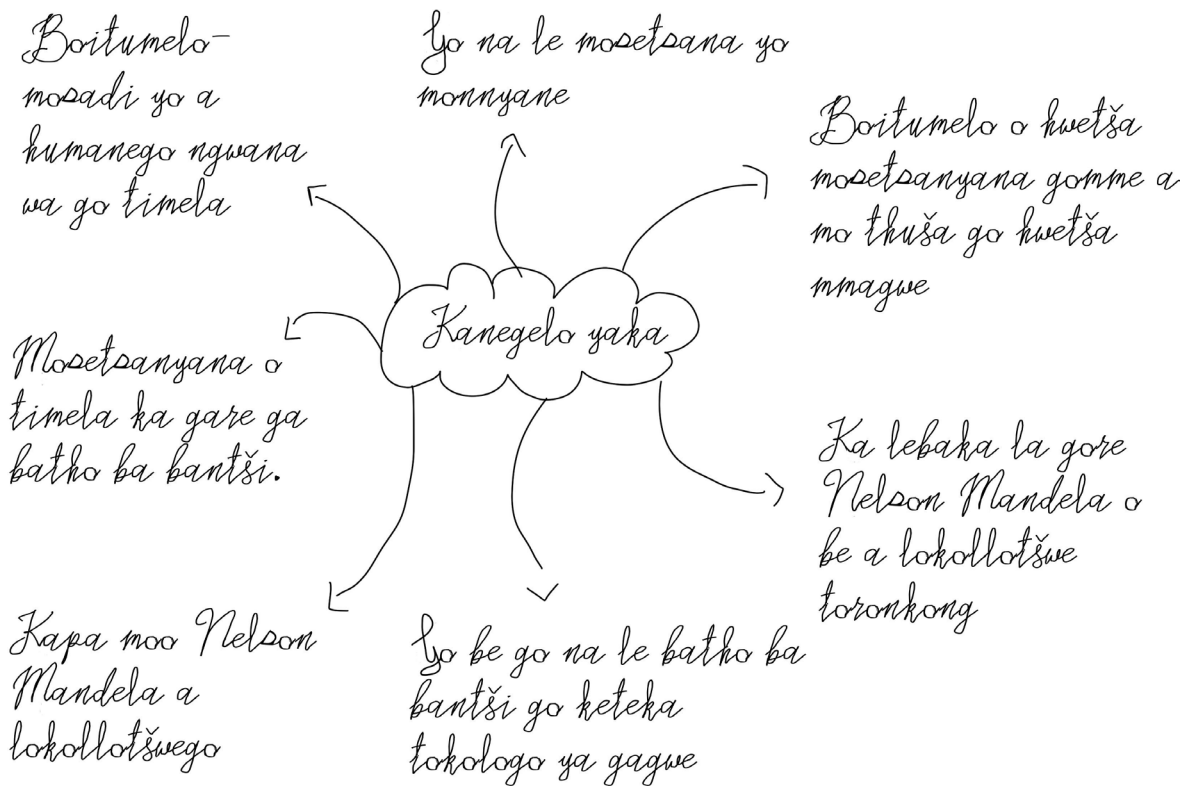 Boitumelo-
mosadi yo a
humanego ngwana
wa go timela
Go na le mosetsana yo
monnyane
Boitumelo o hwetša
mosetsanyana gomme a
mo thuša go hwetša
mmagwe
Kanegelo yaka
Mosetsanyana o
timela ka gare ga
batho ba bantši.
Ka lebaka la gore
Nelson Mandela o
be a lokollotšwe
toronkong
Kapa moo Nelson
Mandela a
lokollotšwego
Go be go na le batho ba
bantši go keteka
tokologo ya gagwe